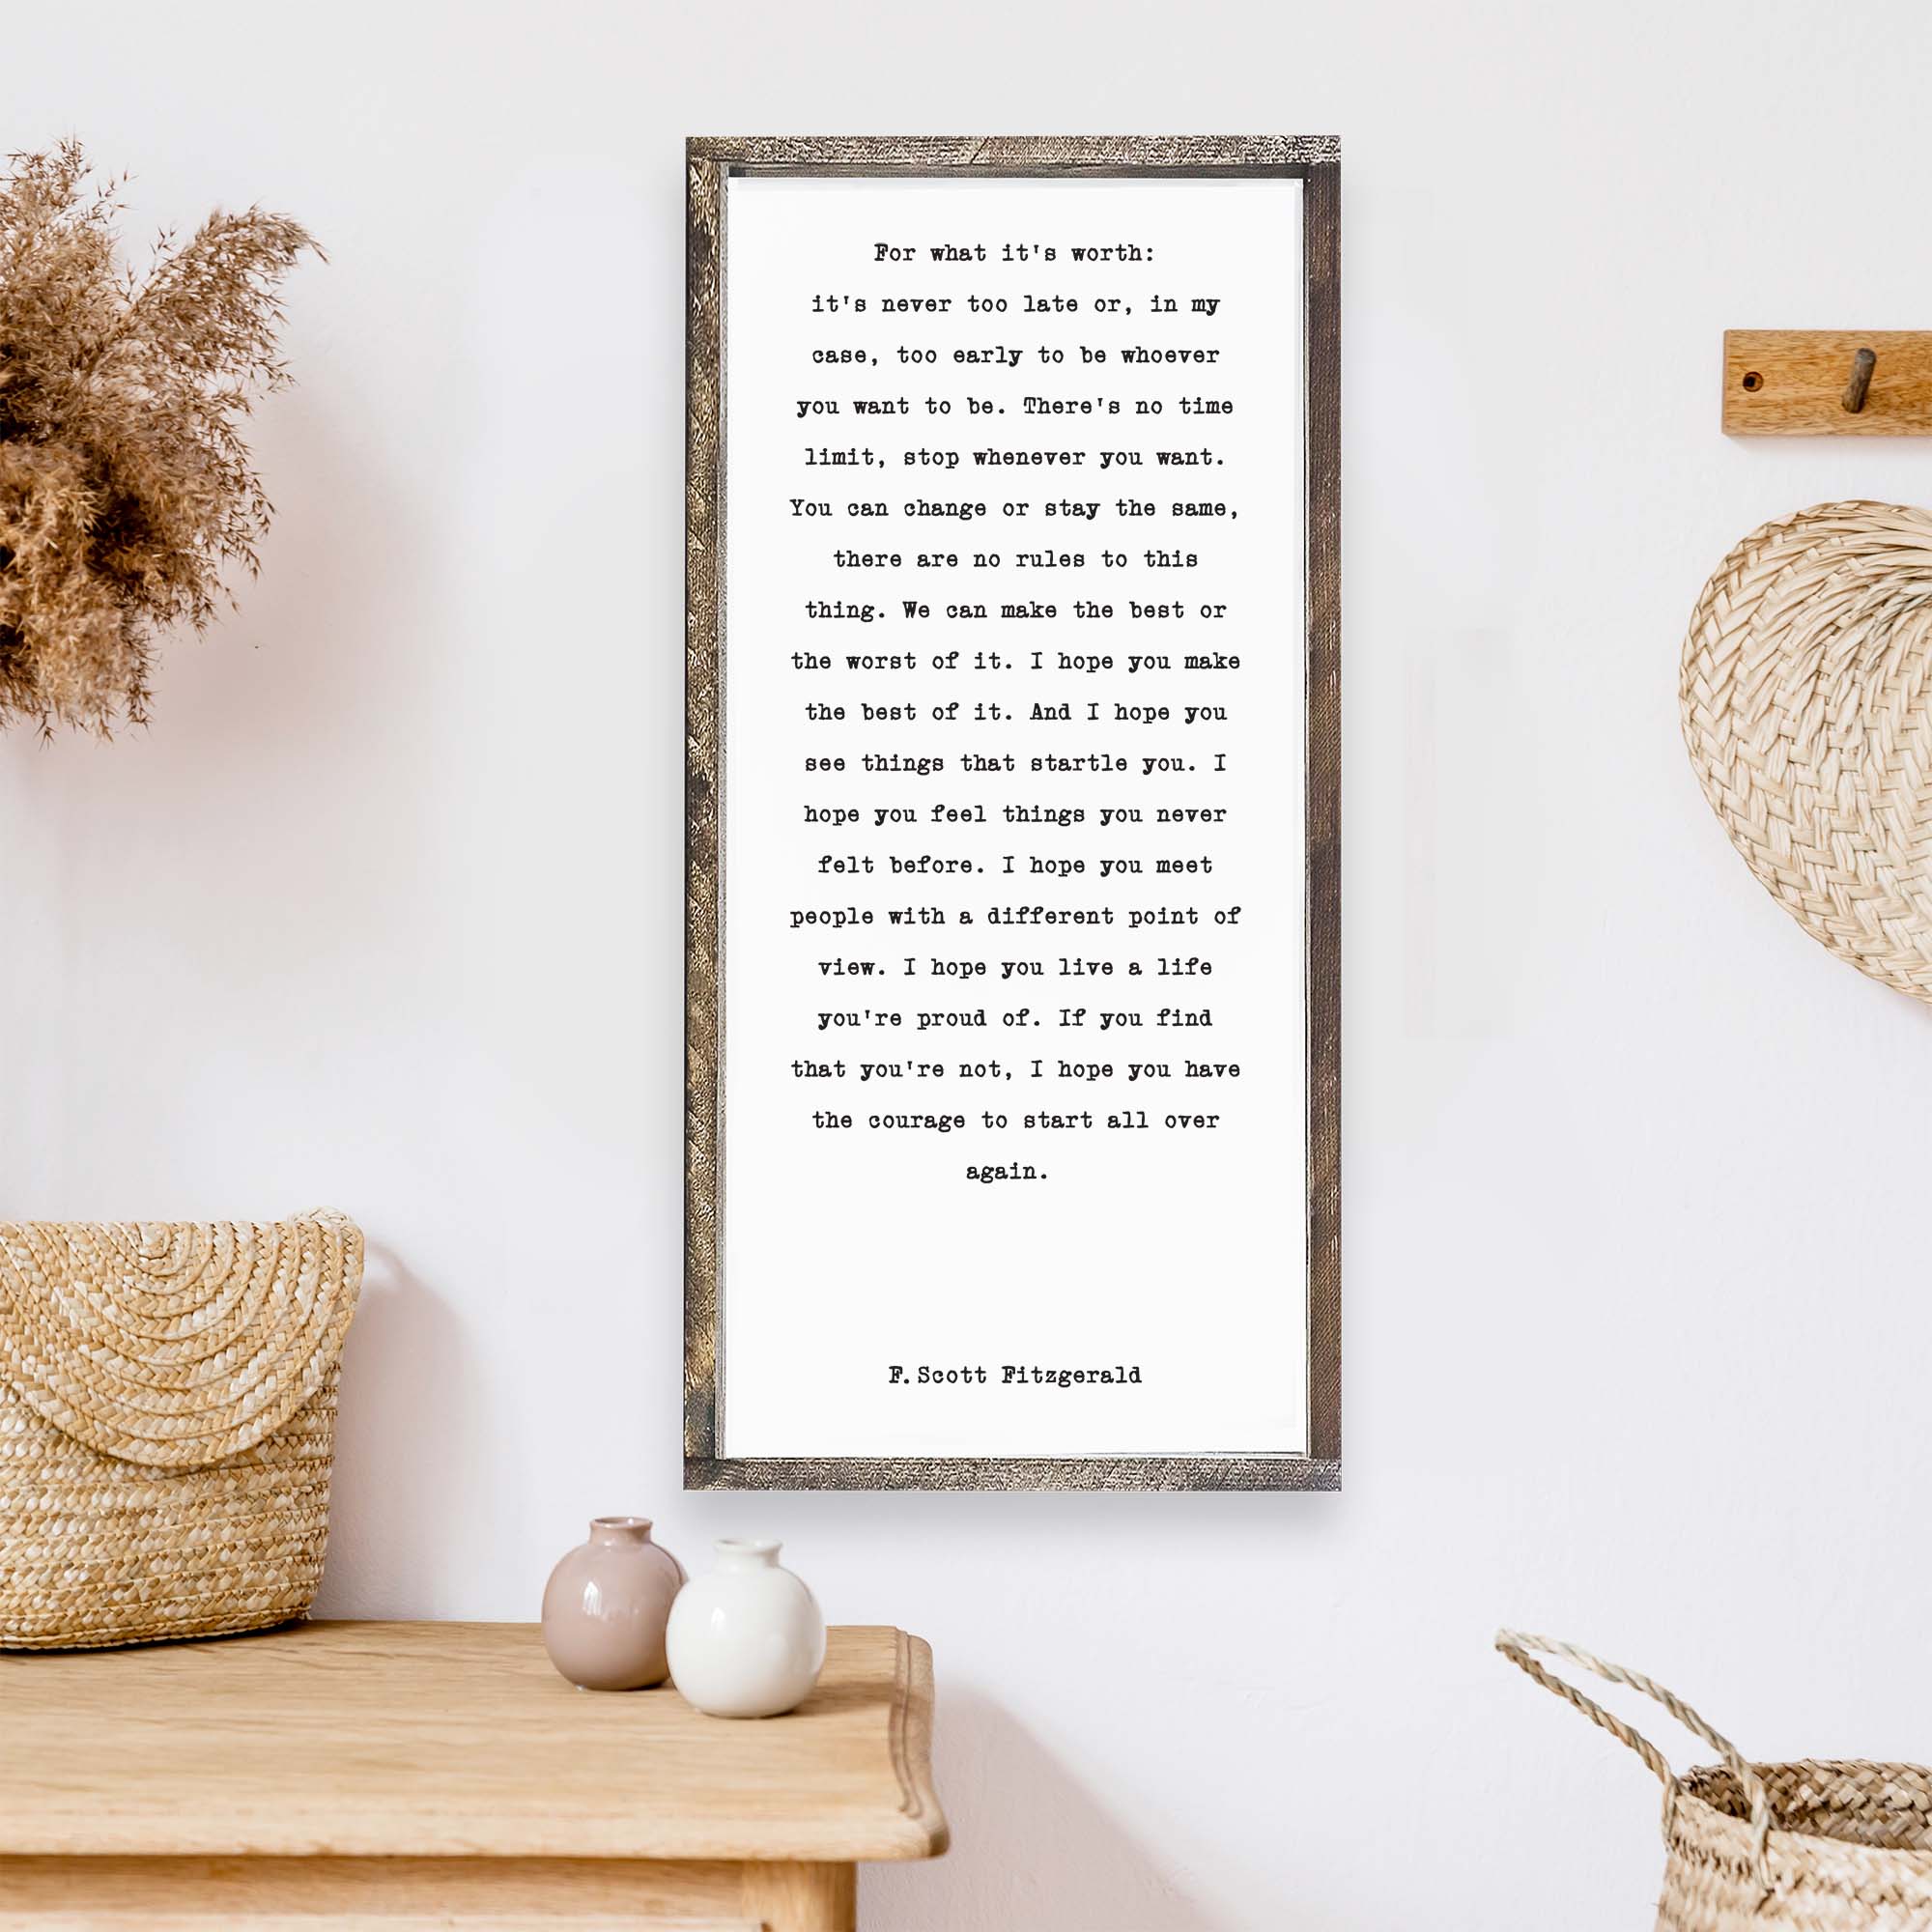 For what it's worth:
it's never too late or, in my
case, too early to be whoever
you want to be. There's no time
limit, stop whenever you want.
You can change or stay the same,
there are no rules to this
thing. We can make the best or
the worst of it. I hope you make
the best of it. And I hope you
see things that startle you. I
hope you feel things you never
felt before. I hope you meet
people with a different point of
view. I hope you live a life
you're proud of. If you find
that you're not, I hope you have
the courage to start all over
again.
F. Scott Fitzgerald